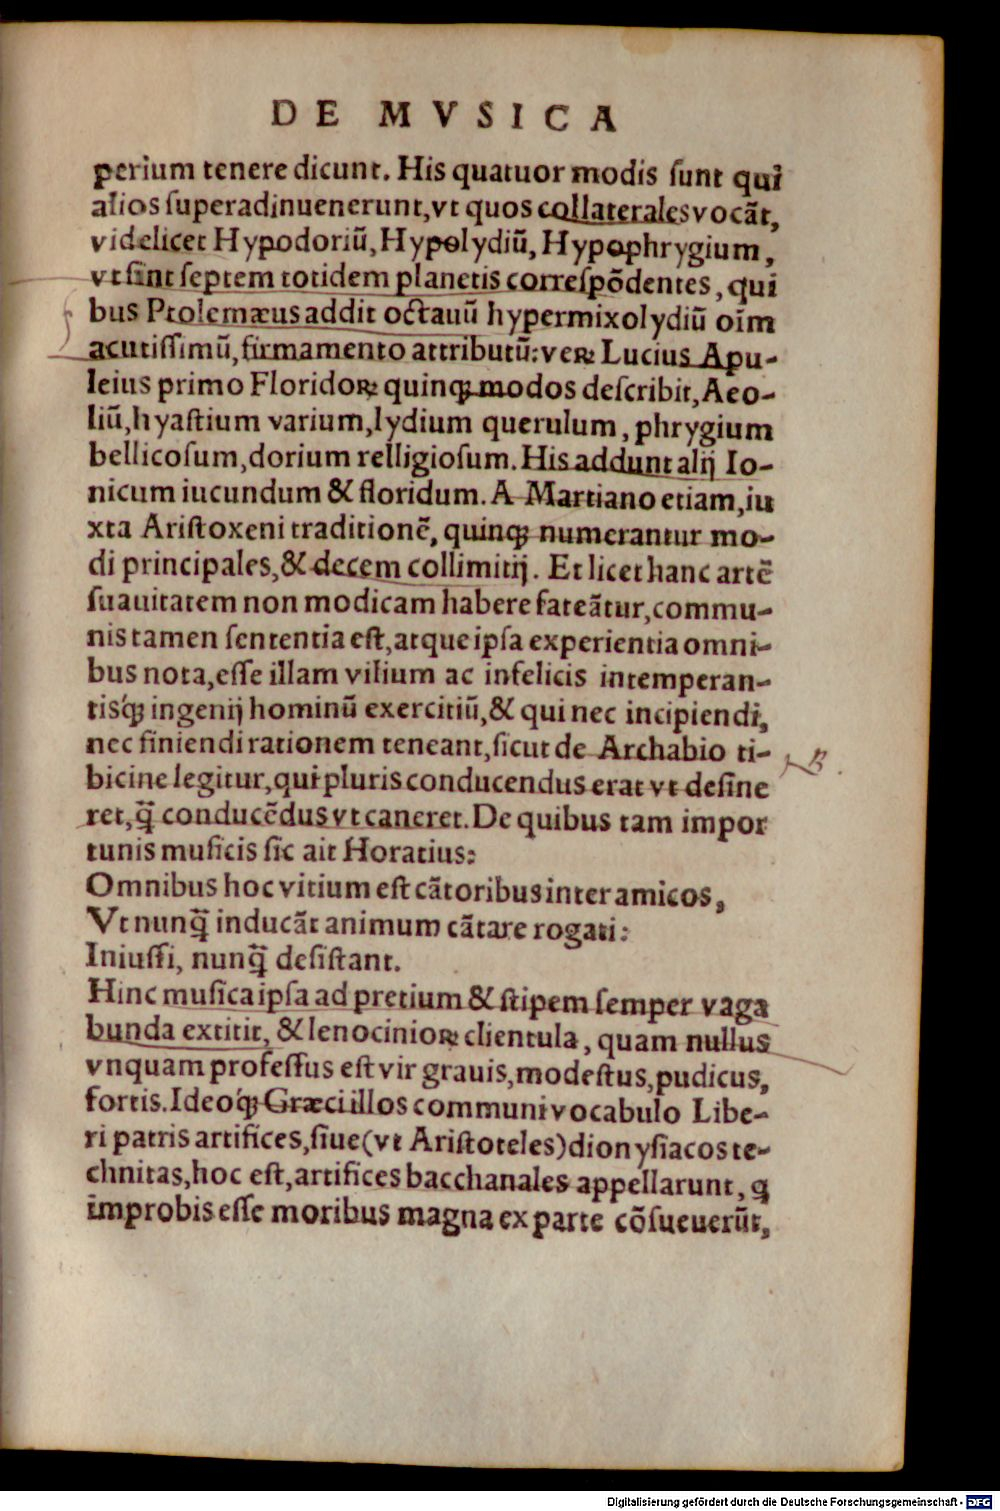 DE MVSICA
perium tenere dicunt. His quatuor modis ſunt qui
alios ſuperadinuenerunt, vt quos collaterales vocãt,
videlicet Hypodoriũ, Hypolydiũ, Hypophrygium,
vt ſint ſeptem totidem planetis correſpõdentes, qui
bus Ptolemæus addit octauũ hypermixolydiũ oĩm
acutiſſimũ, firmamento attributũ: veꝝ Lucius Apu-
leius primo Floridoꝝ quinqꝫ modos deſcribit, Aeo-
liũ, hyaſtium varium, lydium querulum, phrygium
bellicoſum, dorium relligioſum. His addunt alij Io-
nicum iucundum & floridum. A Martiano etiam, iu
xta Ariſtoxeni traditionẽ, quinqꝫ numerantur mo-
di principales, & decem collimitij. Et licet hanc artẽ
ſuauitatem non modicam habere fateãtur, commu-
nis tamen ſententia eſt, atque ipſa experientia omni-
bus nota, eſſe illam vilium ac infelicis intemperan-
tisq́ꝫ ingenij hominũ exercitiũ, & qui nec incipiendi,
nec finiendi rationem teneant, ſicut de Archabio ti-
bicine legitur, qui pluris conducendus erat vt deſine
ret, q̃ conducẽdus vt caneret. De quibus tam impor
tunis muſicis ſic ait Horatius:
Omnibus hoc vitium eſt cãtoribus inter amicos,
Vt nunq̃ inducãt animum cãtare rogati:
Iniuſſi, nunq̃ deſiſtant.
Hinc muſica ipſa ad pretium & ſtipem ſemper vaga
bunda extitit, & lenocinioꝝ clientula, quam nullus
vnquam profeſſus eſt vir grauis, modeſtus, pudicus,
fortis. Ideoq́ꝫ Græci illos communi vocabulo Libe-
ri patris artifices, ſiue (vt Ariſtoteles) dionyſiacos te-
chnitas, hoc eſt, artifices bacchanales appellarunt, ꝗ
improbis eſſe moribus magna ex parte cõſueuerũt,
Digitalisierung gefördert durch die Deutsche Forschungsgemeinschaft - DFG